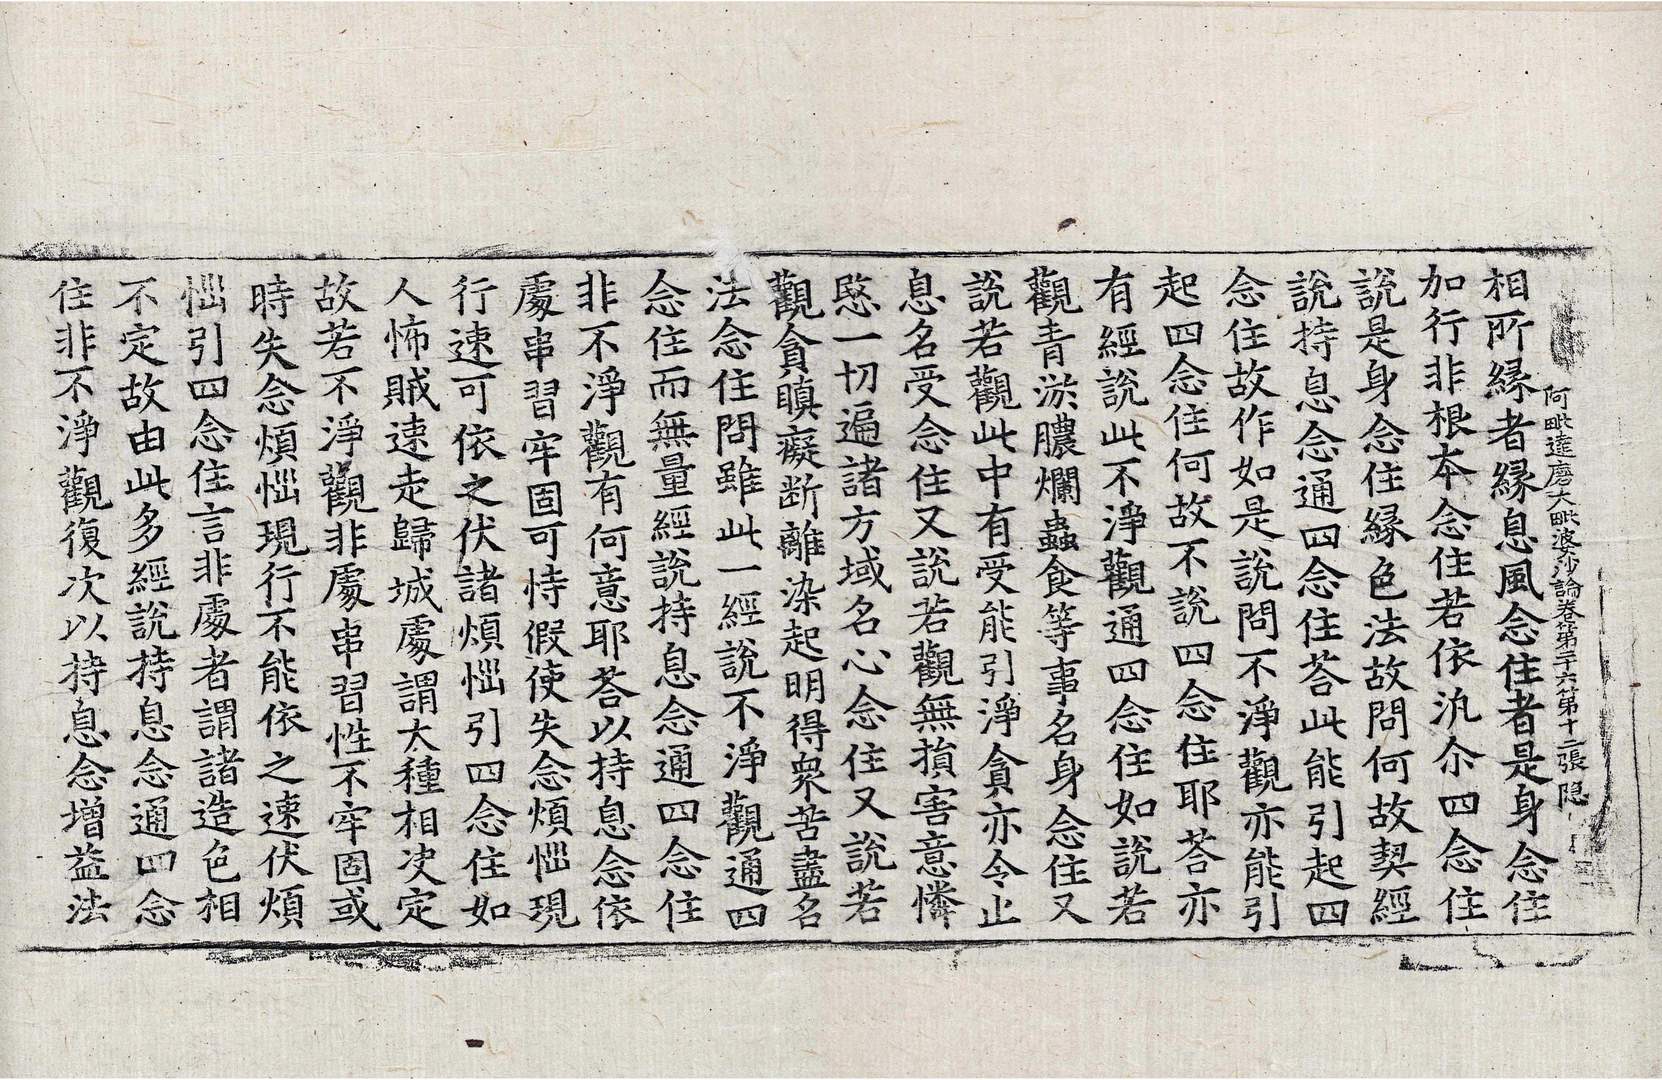 阿毗達磨大毗婆沙論卷第二十六第十二張隐
相所縁者縁息風念住者是身念住
加行非根夲念住若依汎尒四念住
說是身念住縁色法故問何故契經
說持息念通四念住荅此能引起四
念住故作如是說問不淨觀亦能引
起四念住何故不說四念住耶荅亦
有經說此不淨觀通四念住如說若
觀青淤膿爛蟲食等事名身念住又
說若觀此中有受能引淨貪亦令止
息名受念住又說若觀無損害意憐
愍一切遍諸方域名心念住又說若
觀貪瞋癡断離染起明得衆苦盡名
法念住問雖此一經說不淨觀通四
念住而無量經說持息念通四念住
非不淨觀有何意耶荅以持息念依
處串習牢固可恃假使失念煩惱現
行速可依之伏諸煩惱引四念住如
人怖賊速走歸城處謂大種相决定
故若不淨觀非處串習性不牢固或
時失念煩惱現行不能依之速伏煩
惱引四念住言非處者謂諸造色相
不定故由此多經說持息念通四念
住非不淨觀復次以持息念增益法